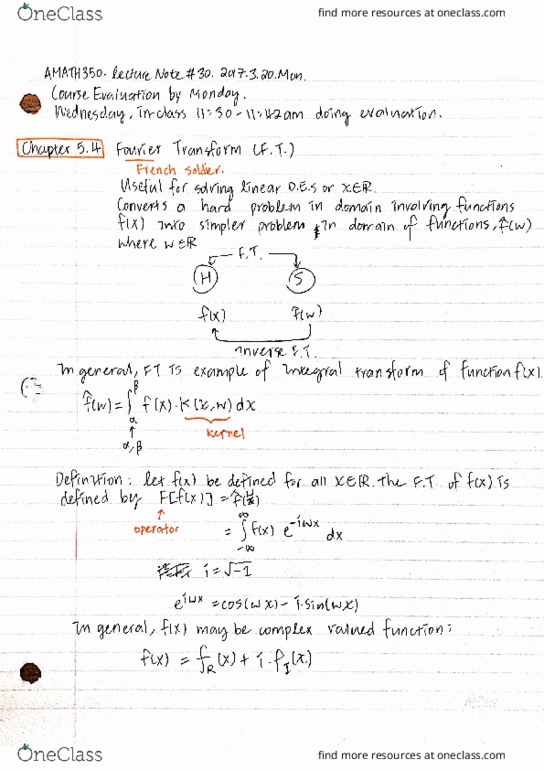 OneClass find more resources at oneclass.com
AMATH350. lecture Note #30. 2017.3.20.Mon.
Course Evaluation by Monday.
Wednesday, in-class 11:30-11:42am doing evaluation.
Chapter 5.4 Fourier Transform (F.T.)
French soldier.
Useful for solving linear D.E.s or x∈R.
Converts a hard problem in domain involving functions
f(x) into simpler problem in domain of functions, f̂(w)
where w∈R
F.T.
H S
f(x) f̂(w)
inverse F.T.
In general, FT is example of integral transform of function f(x).
f̂(w) = ∫_α^β f(x)·K(x,w) dx
α,β kernel
Definition: let f(x) be defined for all x∈R. the F.T. of f(x) is
defined by F[f(x)] =
operator = ∫_-∞^∞ f(x) e^-iwx dx
i = √-1
e^iwx = cos(wx) - i·sin(wx)
In general, f(x) may be complex valued function:
f(x) = f_R(x) + i·f_I(x)
OneClass find more resources at oneclass.com